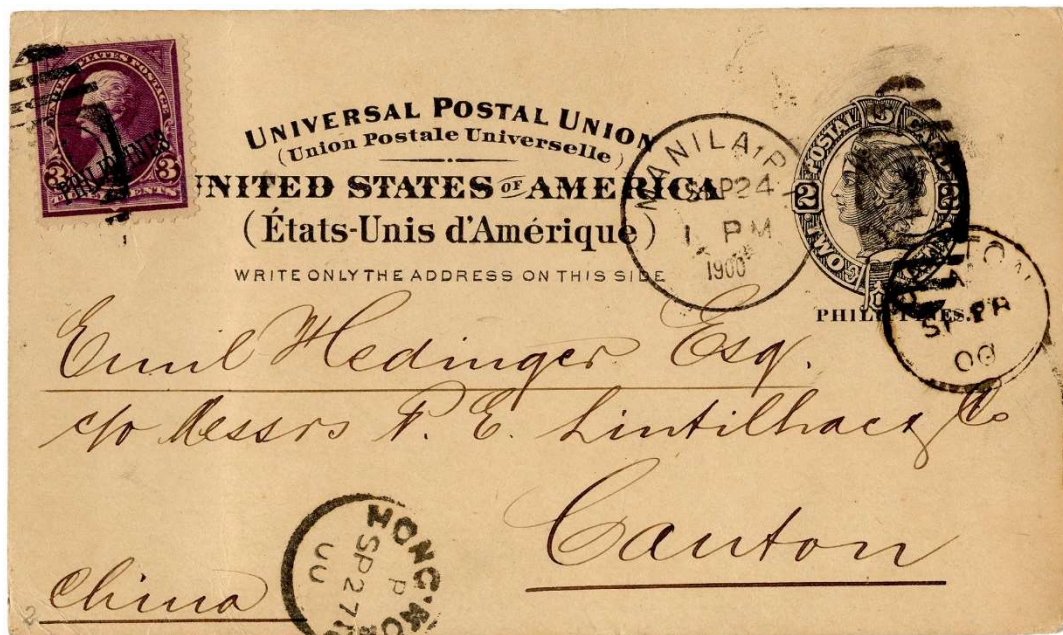 UNITED STATES POSTAGE
PHILIPPINES
3 3
CENTS
UNIVERSAL POSTAL UNION
(Union Postale Universelle)
UNITED STATES OF AMERICA
(États-Unis d'Amérique)
WRITE ONLY THE ADDRESS ON THIS SIDE
MANILA
SEP 24
1 PM
1900
POSTAL
2 2
PHILIPPINES.
00
Emil Hedinger Esq.
c/o Messrs P. E. Lintilhac & Co
Canton
China
HONG-KO
P
SP 27
00
2